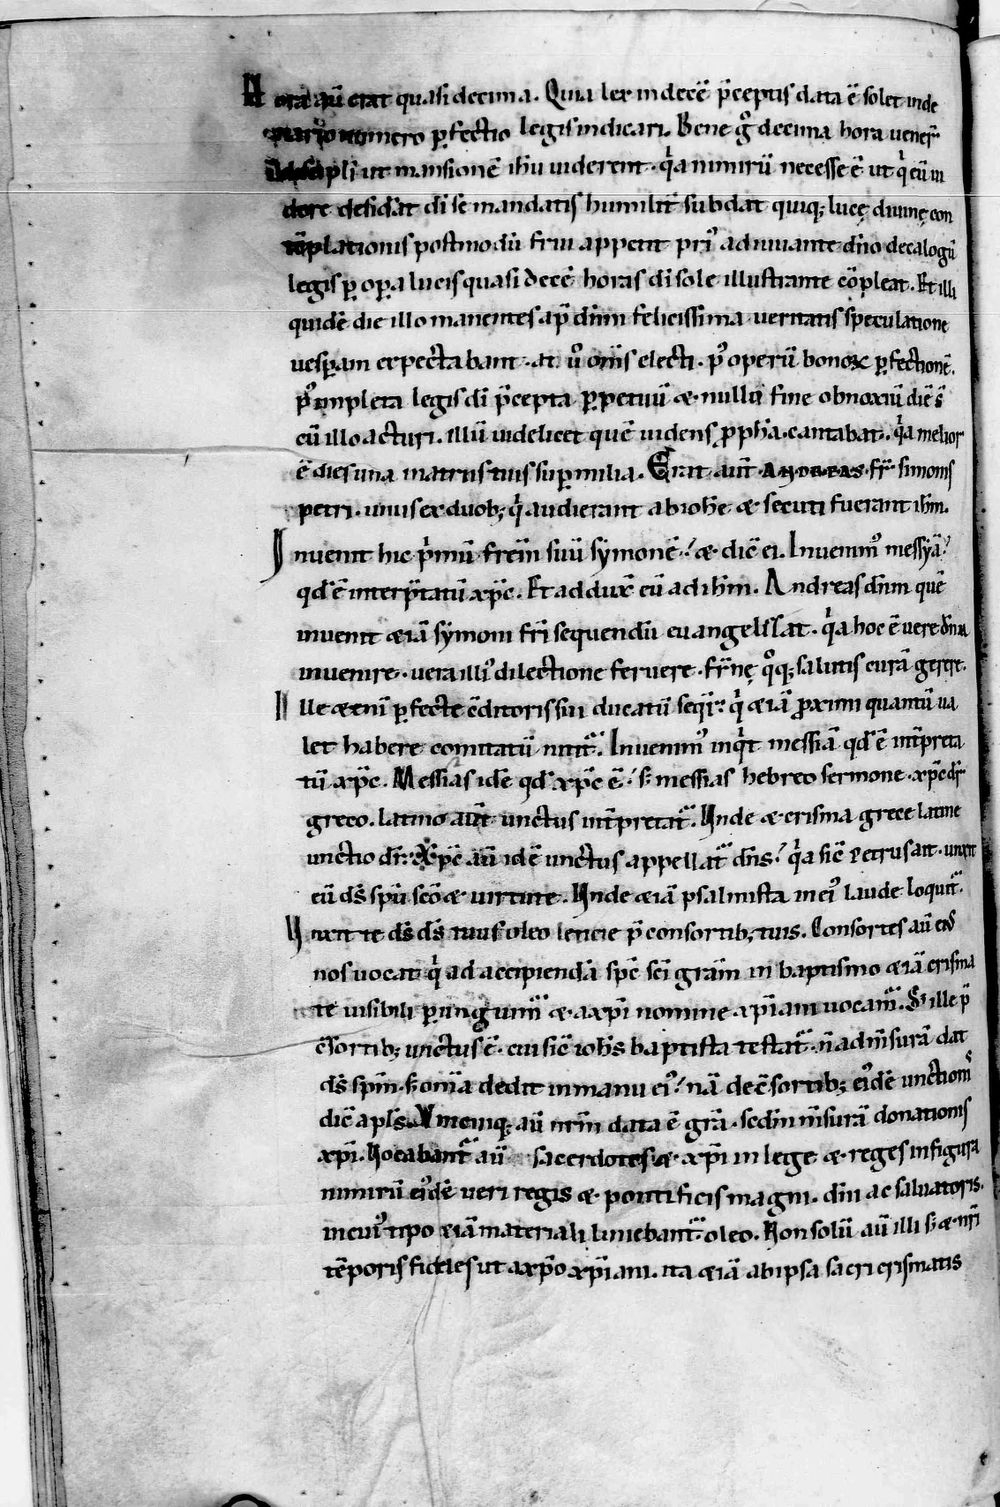 Hora aū erat quasi decima. Quia lex in decē p̄ceptis data ē solet in de
nario numero ꝑfectio legis indicari. Bene g̊ decima hora uener̄
discipli ut mansionē ih̄u uiderent. q̇a nimirū necesse ē ut q̇ eū ui
dere desid̄at di se mandatis humilit̄ subdat quiq; lucę diuinę con
tēplationis postmodū frui appetit pri᷒ adiuuante dn̄o decalogū
legis ꝑ oꝑa lucis quasi decē horas di sole illustrante cōpleat. Et illi
quidē die illo manentes ap̄ dn̄m felicissima ueritatis speculatione
uesꝑam expectabant. at ů om̄s electi. p᷒ operū bonoꝝ ꝑfectionē.
p᷒ impleta legis di p̄cepta ꝑpetuū & nullū fine obnoxiū diē s̄
cū illo acturi. illū uidelicet quē uidens ꝓph̄a cantabat. q̇a melior
ē dies una in atriis tuis suꝑ milia. Erat aut̄ ANDREAS fr̄ simonis
petri. unus ex duob; q̇ audierant ab ioh̄e & secuti fuerant ih̄m.
Inuenit hic ṗmū fr̄em suū symonē. & dic̄ ei. Inuenim᷒ messyā.
qd̄ ē interp̄tatū xp̄c. Et addux̄ eū ad ih̄m. Andreas dn̄m quē
inuenit &iā symoni fr̄i sequendū euangelisat. q̇a hoc ē uere dn̄m
inuenire. uera illi᷒ dilectione feruere. fr̄nę q̊q; salutis curā gerere.
Ille &enī ꝑfecte c̄ditoris sui ducatū seqit̄. q̇ &iā ꝓximi quantū ua
let habere comitatū nitit̄. Inuenim᷒ inq̇t messiā qd̄ ē int̄preta
tū xp̄c. Messias idē qd̄ xp̄c ē. s; messias hebreo sermone. xp̄c dr̄
greco. latino aut̄ unctus int̄pretat̄. Unde & crisma grece latine
unctio dr̄. Xp̄c aū idē unctus appellat̄ dn̄s. q̇a sic̄ Petrus ait. unxit
eū ds̄ spū sc̄o & uirtute. Unde &iā psalmista in ei᷒ laude loquit̄.
Unxit te ds̄ ds̄ tuus oleo leticie p̄ consortib; tuis. Consortes aū ei᷒
nos uocat q̇ ad accipiendā spc̄ sc̄i grām in baptismo &iā crisma
te uisibili ꝑungum̄ & a xp̄i nomine xp̄iani uocam̄. S; ille p̄
c̄sortib; unctus ē. cui sic̄ ioh̄s baptista testat̄. n̄ ad m̄surā dat
ds̄ spm̄. s; om̄ia dedit in manu ei᷒. nā de c̄sortib; ei᷒dē unctionis
dic̄ apl̄s. Unicuiq; aū nr̄m data ē grā. scdm̄ m̄surā donationis
xp̄i. Uocabant̄ aū sacerdotes & xp̄i in lege & reges in figura
nimirū ei᷒dē ueri regis & pontificis magni. dn̄i ac saluatoris.
in cui᷒ tipo &iā materiali liniebant̄ oleo. Non solū aū illi s; & nr̄i
tēporis fideles ut a xp̄o xp̄iani. ita &iā ab ipsa sacri crismatis